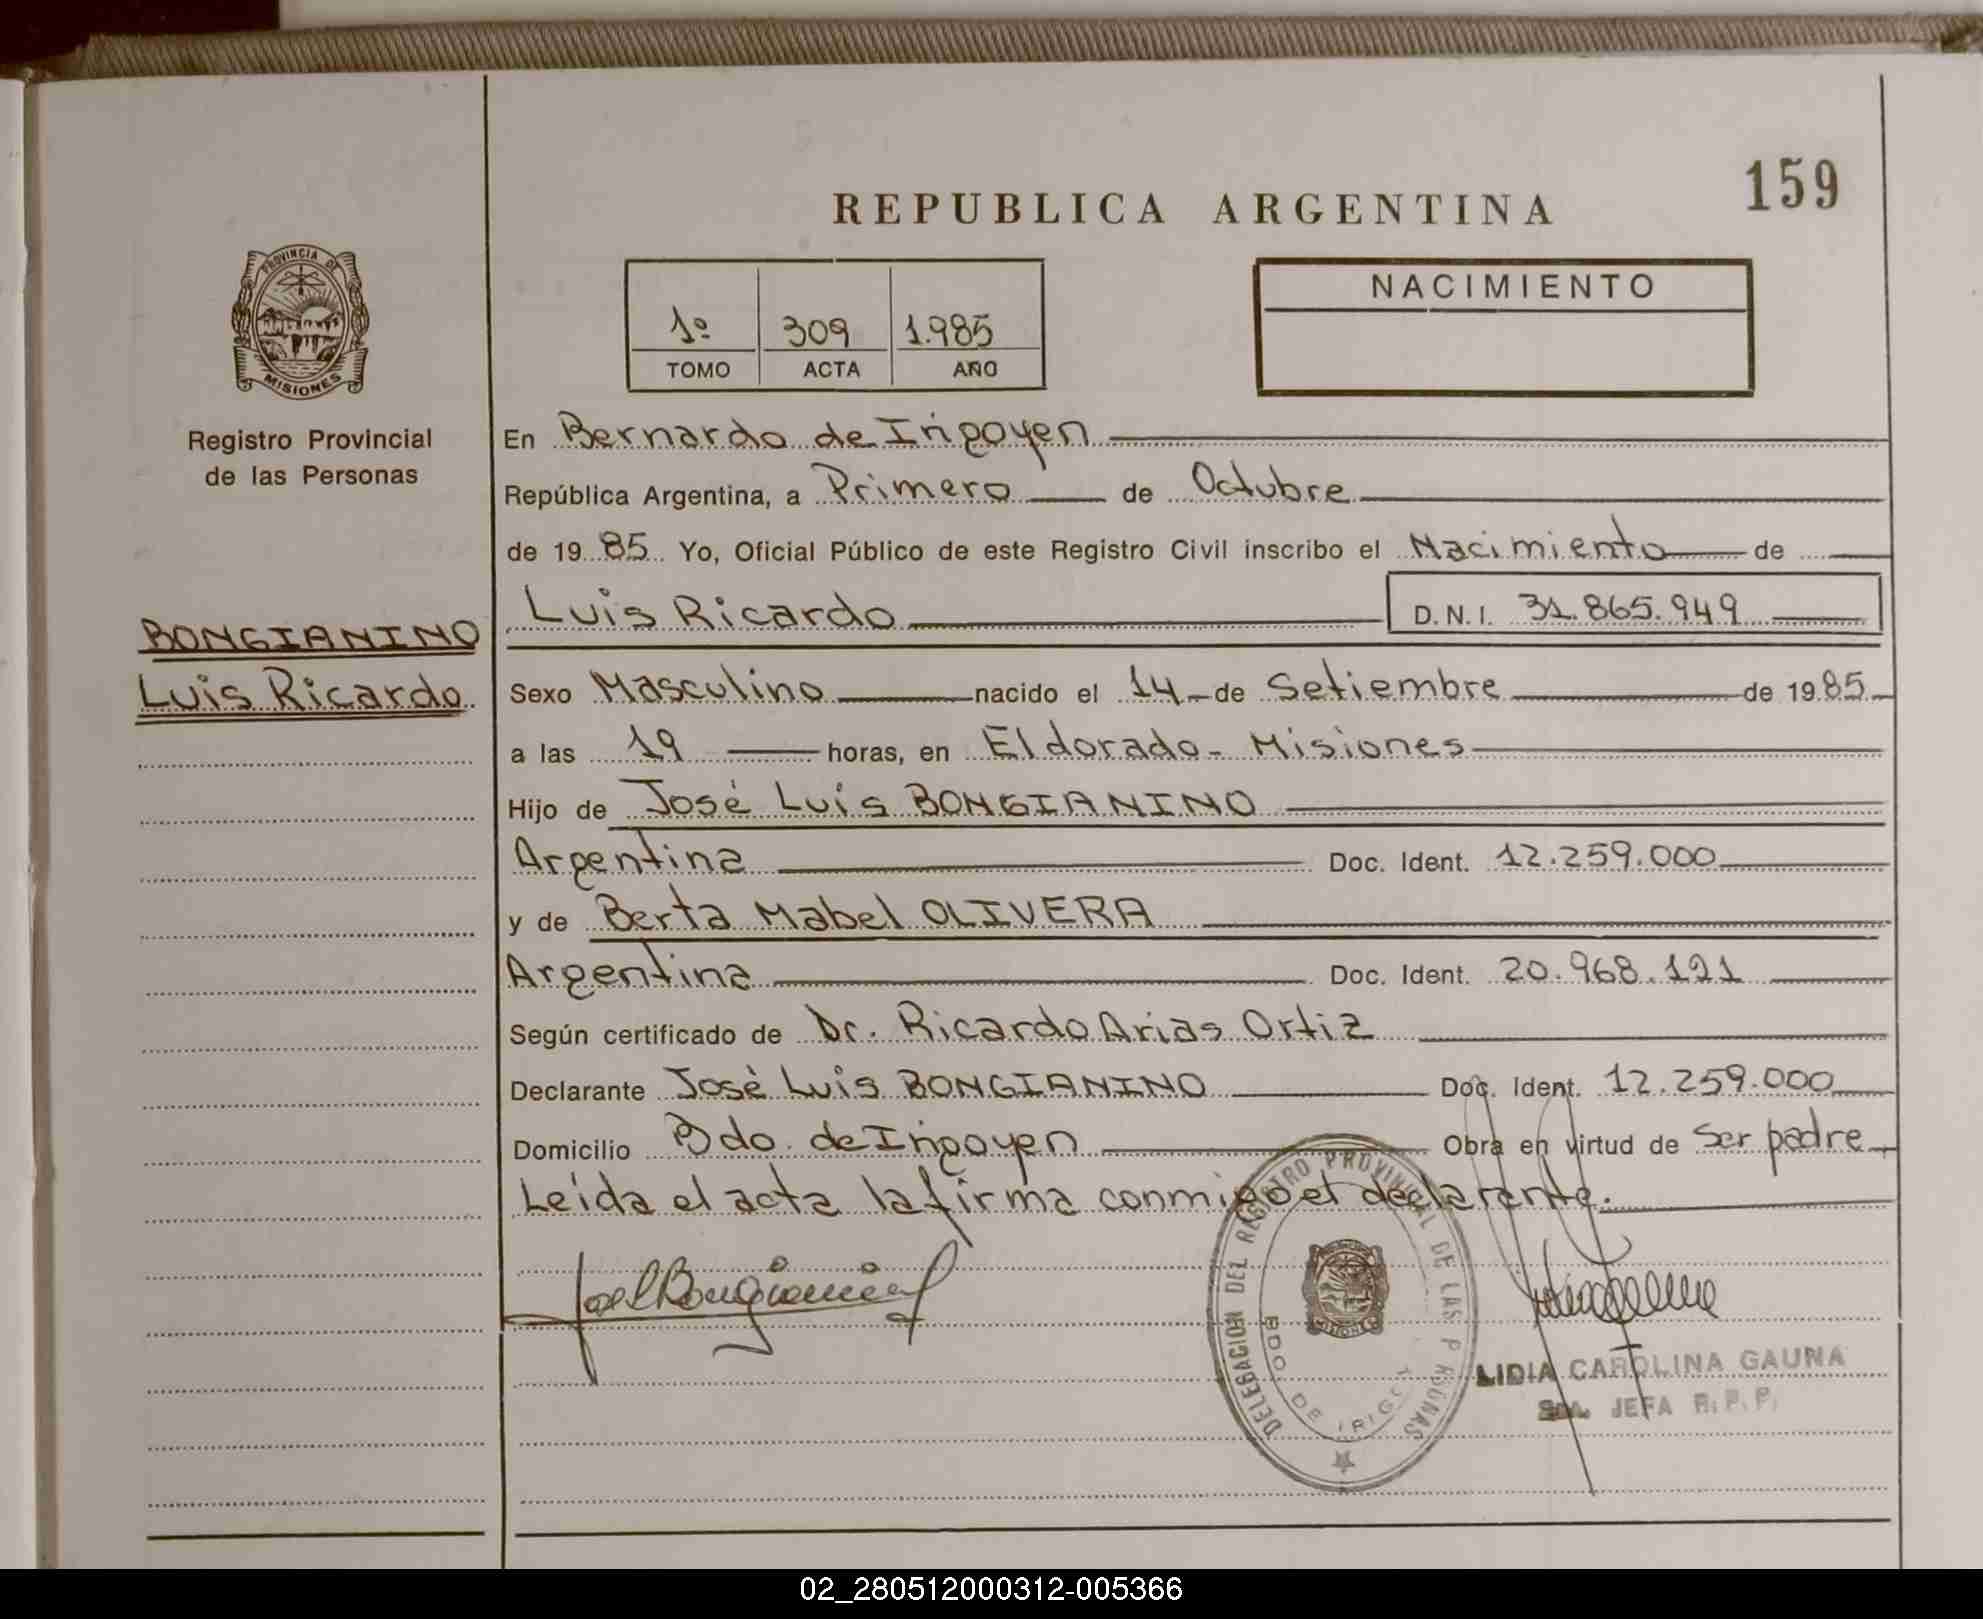 159
REPUBLICA ARGENTINA
PROVINCIA DE
MISIONES
Registro Provincial
de las Personas
BONGIANINO
Luis Ricardo
1º 309 1.985
TOMO ACTA AÑO
NACIMIENTO
En Bernardo de Irigoyen
República Argentina, a Primero de Octubre
de 1985 Yo, Oficial Público de este Registro Civil inscribo el Nacimiento de
Luis Ricardo D.N.I. 31.865.949
Sexo Masculino nacido el 14 de Setiembre de 1985
a las 19 horas, en Eldorado - Misiones
Hijo de José Luis BONGIANINO
Argentina Doc. Ident. 12.259.000
y de Berta Mabel OLIVERA
Argentina Doc. Ident. 20.968.121
Según certificado de Dr. Ricardo Arias Ortiz
Declarante José Luis BONGIANINO Doc. Ident. 12.259.000
Domicilio Bdo. de Irigoyen Obra en virtud de Ser padre
Leída el acta la firma conmigo el declarante.
DELEGACION DEL REGISTRO PROVINCIAL DE LAS P RSONAS
BDO. DE IRIGOY
MISIONES
LIDIA CAROLINA GAUNA
JEFA R.P.P.
02_280512000312-005366